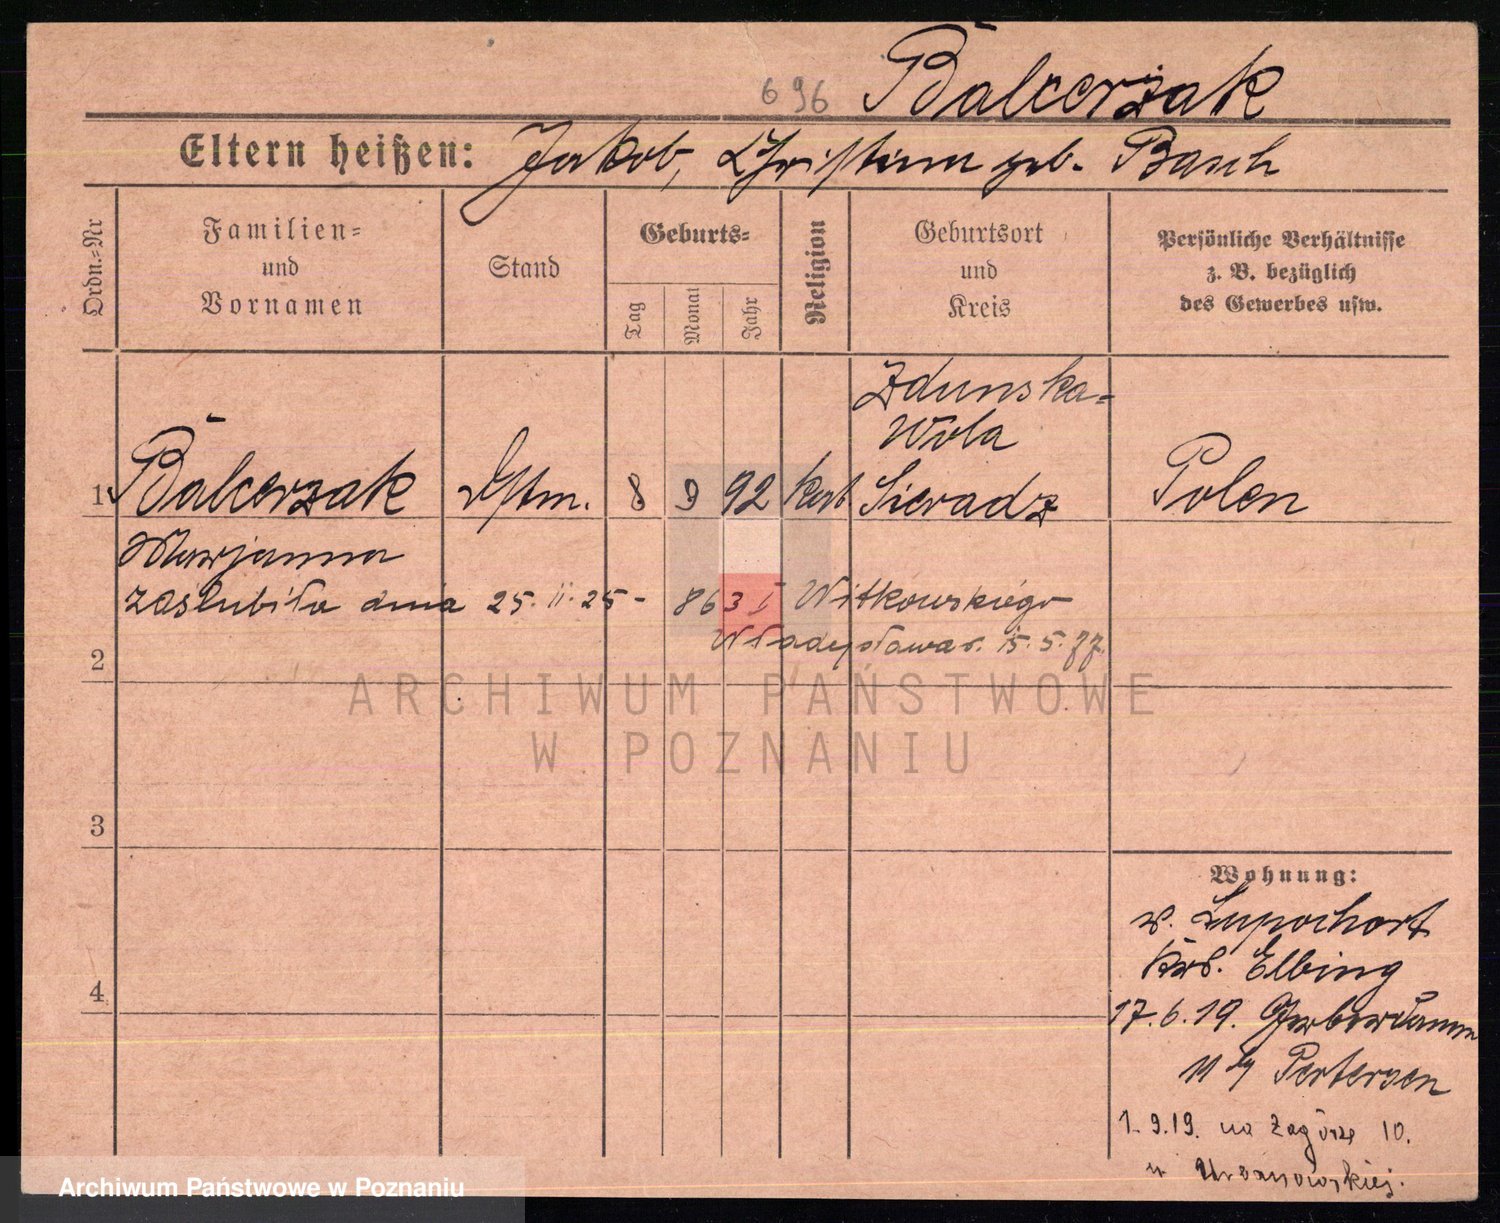 696 Balcerzak
Eltern heißen: Jakob, Christina geb. Basch
Ordn.=Nr
Familien=
und
Vornamen
Stand
Geburts=
Tag
Monat
Jahr
Religion
Geburtsort
und
Kreis
Persönliche Verhältnisse
z. B. bezüglich
des Gewerbes usw.
Zdunska=
Wola
1 Balcerzak 8 9 92 kath Sieradz Polen
Marjanna
zaślubiła dnia 25. II. 25 - 863 I Witkowskiego
Władysława 15. 5. 77.
2
ARCHIWUM PAŃSTWOWE
W POZNANIU
3
Wohnung:
v.
Krs. Elbing
4
17. 6. 19. Gerberdamm
11 Petersen
1. 9. 19. na Zagórze 10.
u Urbanowskiej.
Archiwum Państwowe w Poznaniu